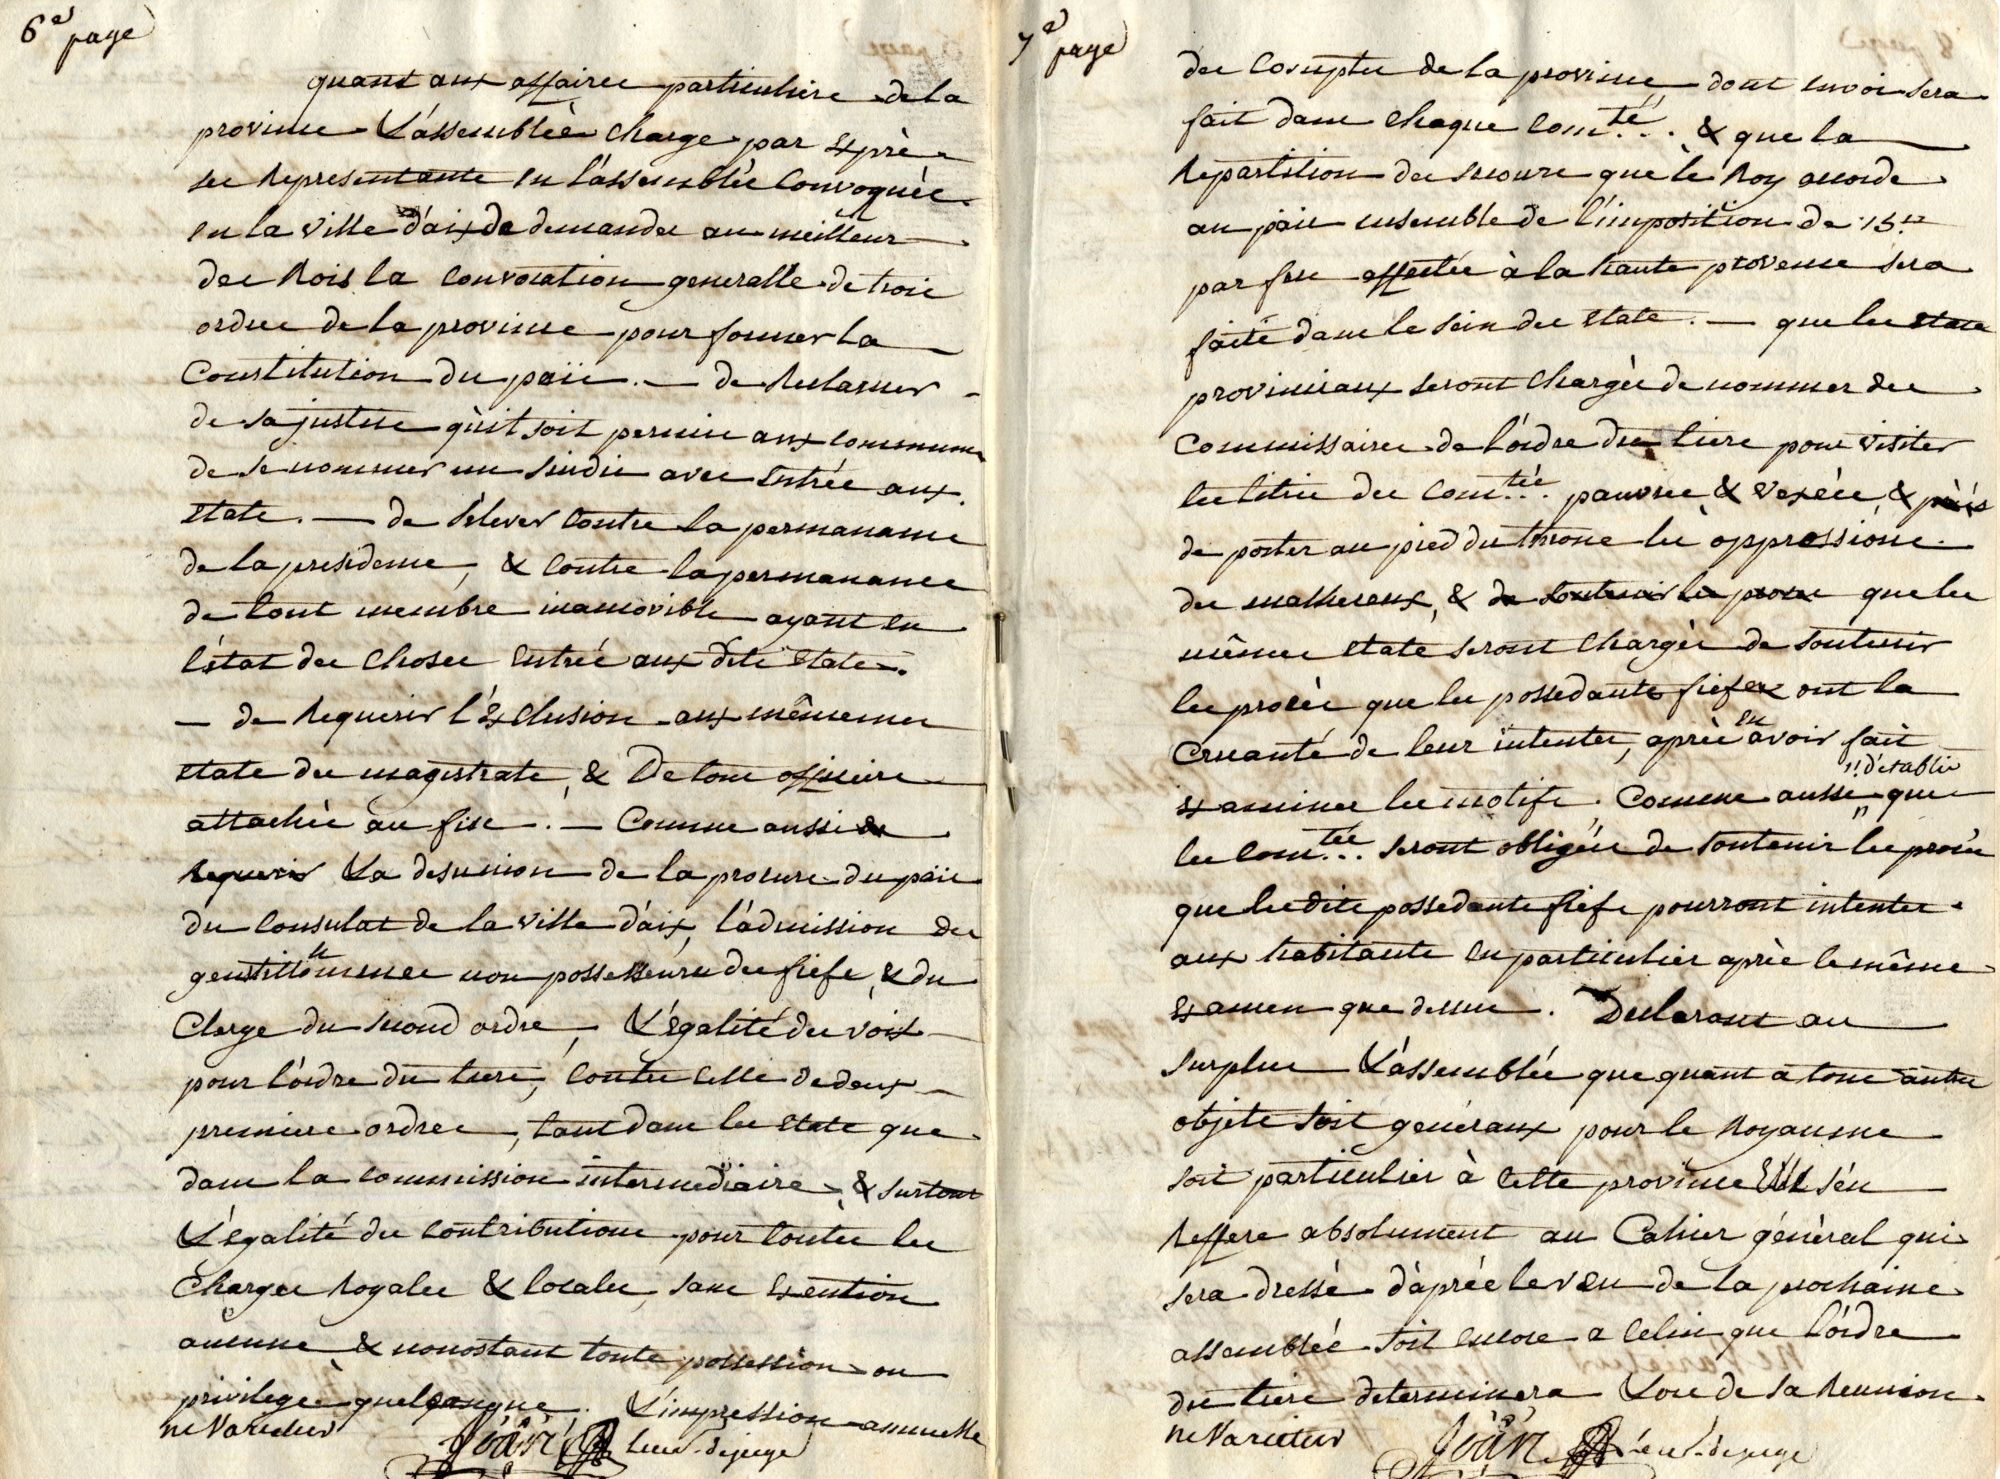 6e page
quant aux affaires particulieres de la
province L'assemblèe charge par exprès
ses Representants en l'assemblée Convoquèe
en la ville d'aix de demander au meilleur
des Rois la convocation generalle de trois
ordres de la province pour former la
Constitution du païs. — de Reclamer
de sa justice qu'it soit permis aux communes
de se nommer un sindic avec Entrée aux
Etats. — de s'elever Contre la permanance
de la presidence, & Contre la permanance
de tout membre inamovible ayant en
l'ètat des choses Entrée aux dits Etats.
— de Requerir l'Exclusion aux mêmemes
Etats des magistrats, & De tous officiers
attachés au fisc. — Comme aussi de
Requerir La desunion de la procure du païs
du Consulat de la ville d'aix, l'admission des
gentillhommes non possesseurs des fiefs, & du
Clerge du second ordre, L'Egalité des voix
pour l'ordre du tiers, Contre celle de deux
premiers ordres, tant dans les Etats que
dans la commission intermediaire, & surtout
L'Egalité des Contributions pour toutes les
Charges Royales & locales, sans Exention
aucune & nonostant toute possession ou
privileges quelqonque. L'impression annuelle
ne Varietur
Joan Lieut. de juge
7e page
des Comptes de la province dont envoi sera
fait dans chaque Com.té.. & que la
Repartition des secours que le Roy accorde
au païs ensemble de l'imposition de 15.#
par feu affectée à la haute provence sera
faite dans le sein des Etats. — que les Etats
provinciaux seront chargès de nommer des
Commissaires de l'ordre du tiers pour visiter
les titres des Com.tés.. pauvres & vexées & près
de porter au pied du throne les oppressions
des malhereux, & de soutenir les proces que les
mêmes Etats seront chargès de soutenir
les procès que les possedants fiefs ont la
Cruauté de leur intenter, après en avoir fait
examiner les motifs. Comme aussi d'etablir que
les Com.tés.. seront obligées de soutenir les procès
que lesdits possedants fiefs pourront intenter
aux habitants en particulier après le même
Examen que dessus. Declarant au
surplus L'assemblée que quant a tous autres
objets soit generaux pour le Royaume
soit particuliers à cette province Elle s'en
Reffere absolument au Cahier général qui
sera dressé d'après le vœu de la prochaine
assemblée soit encore a celui que l'ordre
du tiers determinera Lors de sa Reunion
ne Varietur
Joan Lieut. de juge